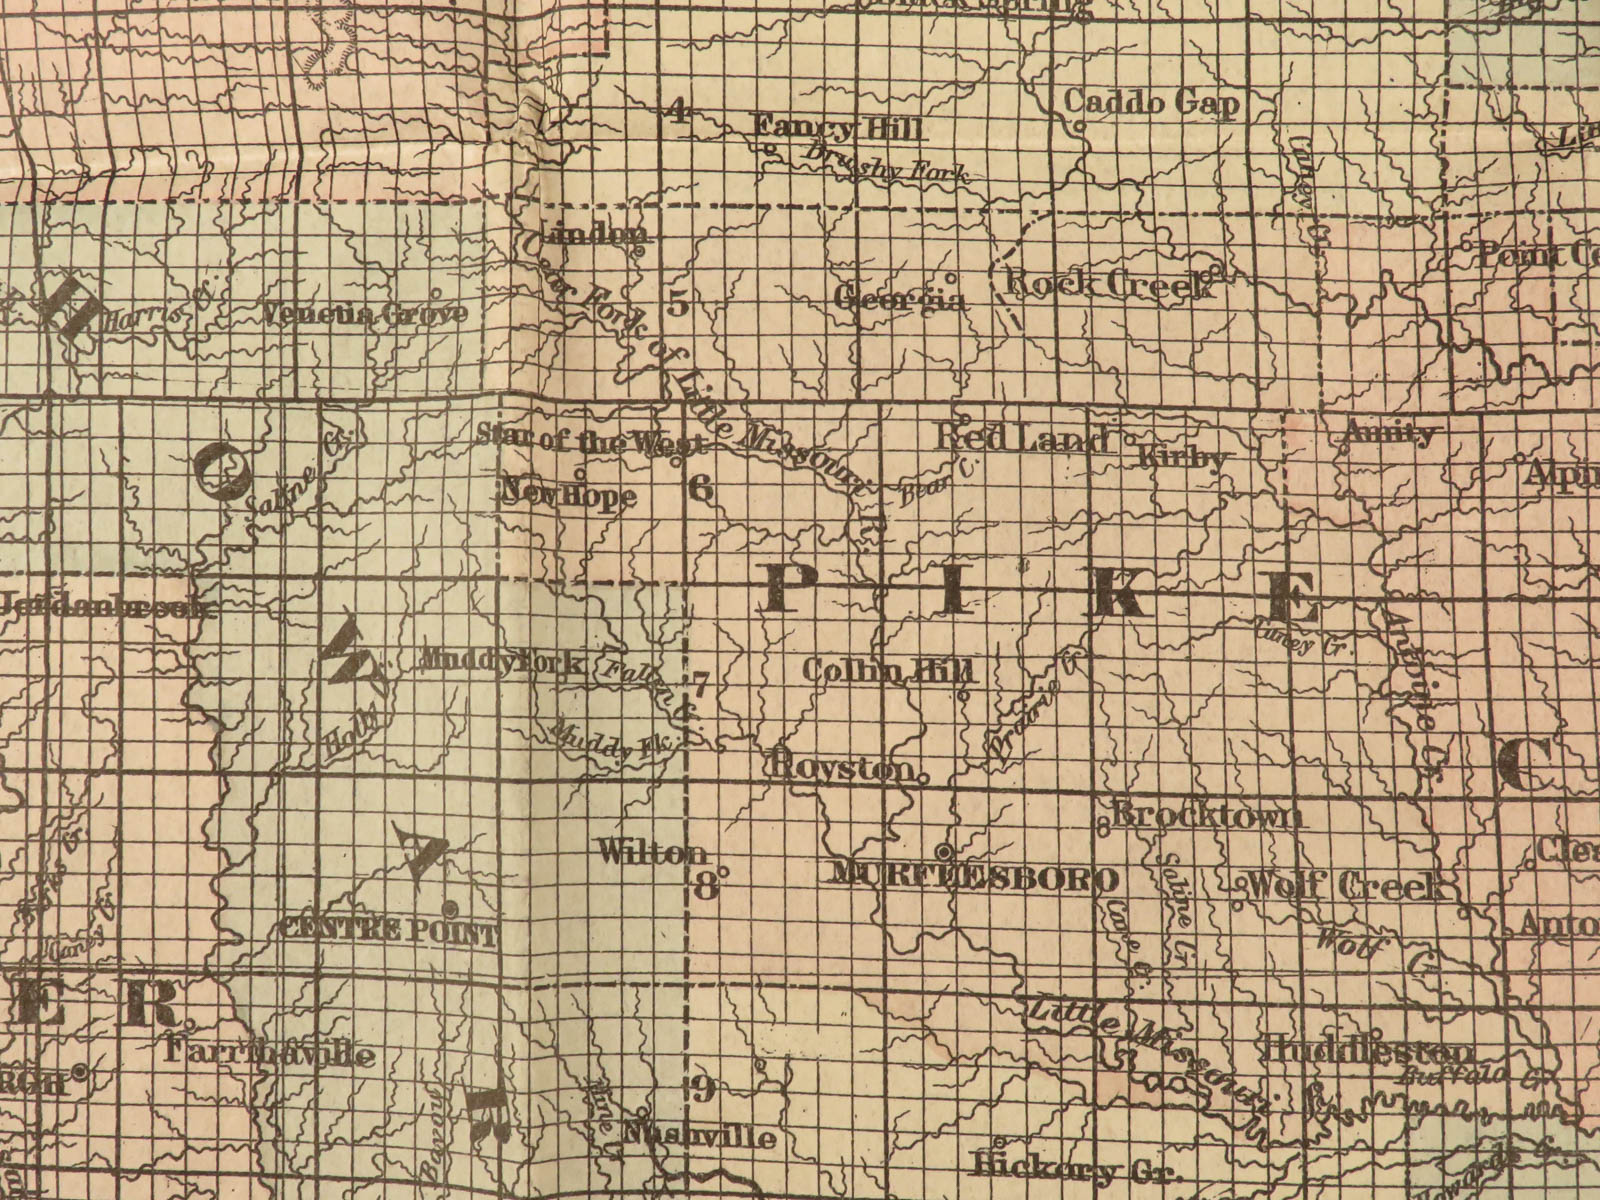 Caddo Gap
4
Fancy Hill
Brushy Fork
Caney Cr.
Lindon
Point Ce
H
Harris Cr.
Venetia Grove
Georgia
Rock Creek
5
Cor Fork of Little Missouri R.
Star of the West
Red Land
Kirby
Amity
Alpin
O
Saline Cr.
New Hope
6
Bear C.
PIKE
Jordanbrook
W
Muddy Fork
Collin Hill
Antoine Cr.
7
Holly
Muddy Fk.
Prairie Cr.
C
Royston
A
Brocktown
Wilton
8
MURFREESBORO
Wolf Creek
Clea
Saline Cr.
CENTRE POINT
Anto
Caney Cr.
Wolf C.
ER
Little Missouri
Farrindville
Huddleston
Buffalo Cr.
9
R
Nashville
Hickory Gr.